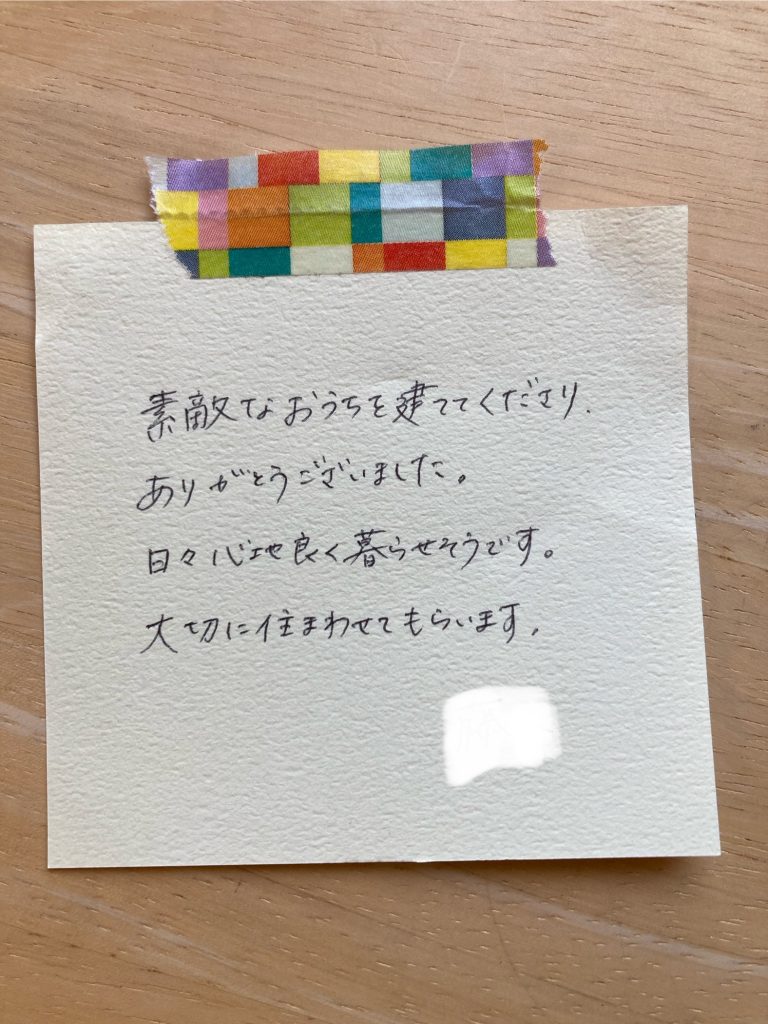 素敵なおうちを建ててくださり、
ありがとうございました。
日々心地良く暮らせそうです。
大切に住まわせてもらいます。